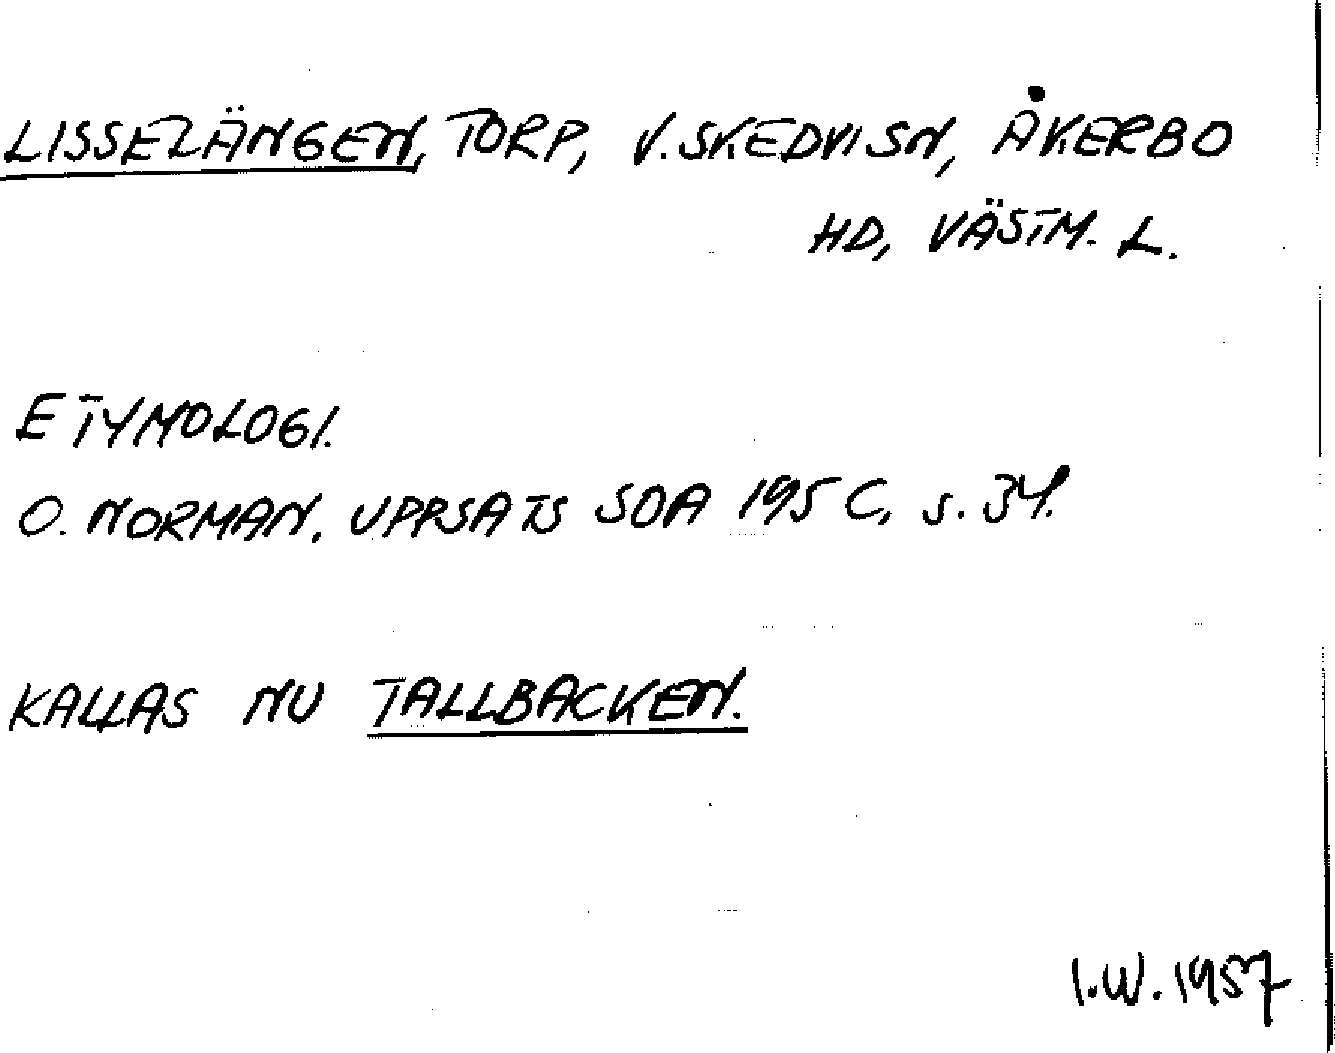 LISSELÄNGEN, TORP, V. SKEDVI SN, ÅKERBO
HD, VÄSTM. L.
ETYMOLOGI.
O. NORMAN, UPPSATS SOA 195 C, s. 34.
KALLAS NU TALLBACKEN.
I.W. 1957